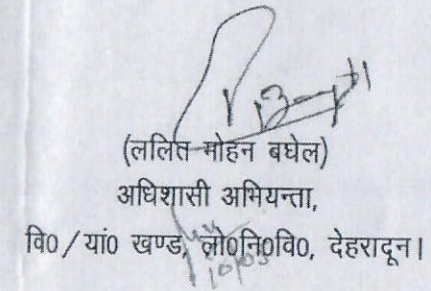 (ललित मोहन बघेल)
अधिशासी अभियन्ता,
वि0/यां0 खण्ड, लो0नि0वि0, देहरादून।